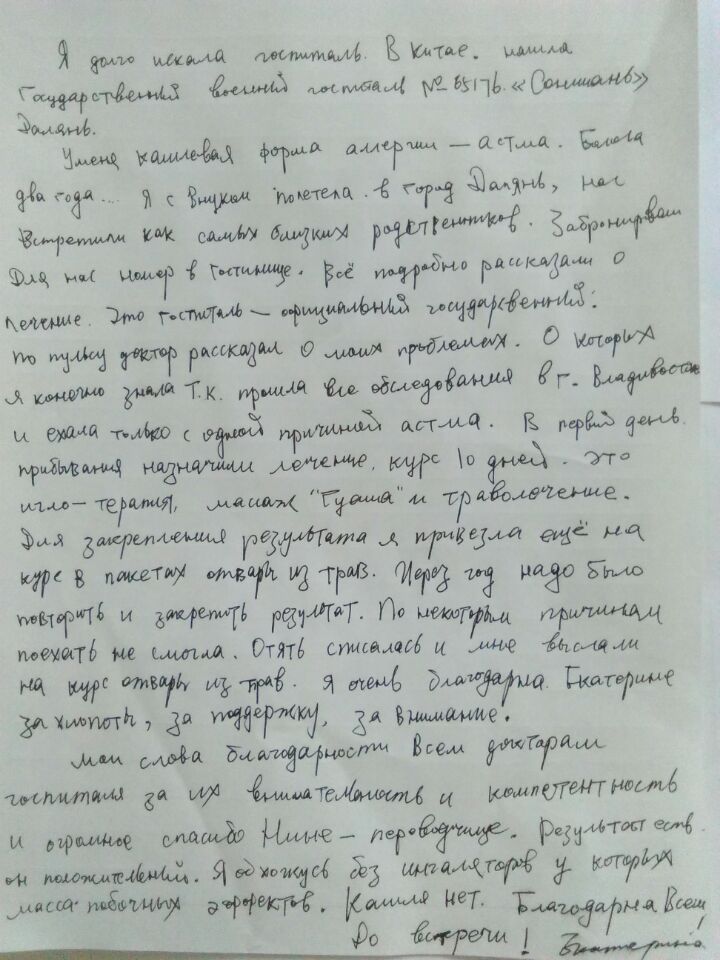 Я долго искала госпиталь. В Китае. нашла
Государственный военный госпиталь № 65176. «Соншань»
Далянь.
Уменя кашлевая форма аллергии — астма. Болела
два года... Я с внуком полетела в город Далянь, нас
Встретили как самых близких родственников. Забронировали
Для нас номер в гостинице. Всё подробно рассказали о
лечение. Это госпиталь — официальный государственный.
по пульсу доктор рассказал о моих проблемах. О которых
я конечно знала Т.К. прошла все обследования в г. Владивосток
и ехала только с одной причиной астма. В первый день
прибывания назначили лечение, курс 10 дней. это
игло-терапия, массаж "Гуаша" и траволечение.
Для закрепления результата я привезла ещё на
курс в пакетах отвары из трав. Через год надо было
повторить и закрепить результат. По некоторым причинам
поехать не смогла. Опять списалась и мне выслали
на курс отвары из трав. Я очень благодарна Екатерине
за хлопоты, за поддержку, за внимание.
Мои слова благодарности Всем докторам
госпиталя за их внимательность и компетентность
и огромное спасибо Нине — переводчице. Результат есть.
он положительный. Я обхожусь без ингаляторов у которых
масса побочных эффектов. Кашля нет. Благодарна Всем!
До встречи! Екатерина